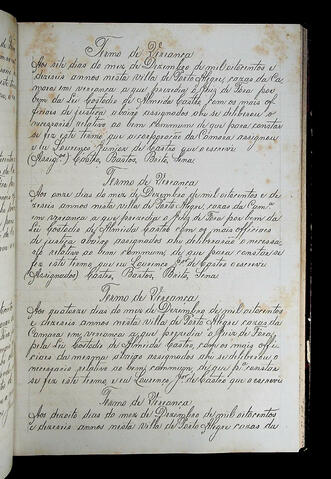 Termo de Verianca
Aos sete dias do mez de Dezembro de mil oitocentos e
dezeseis annos nesta villa de Porto Alegre, cazas da Ca-
mara em verianca a que prezedio o Juiz de Fora por
bem da Lei Custodio de Almeida Castro, com os mais of-
ficiaes de justiça abaixo assignados ahi se deliberou o
necessario relativo ao bem commum de que para constar
se fez este termo que a corporação da Camara assignou
e eu Lourenço Junior de Castro que o escrevi
(Assign.) Coelho, Bastos, Brito, Sena.
Termo de Verianca
Aos onze dias do mez de Dezembro de mil oitocentos e de-
zeseis annos nesta villa de Porto Alegre, cazas da Cam.ra
em verianca a que prezedio o Juiz de Fora por bem da
Lei Custodio de Almeida Castro com os mais officiaes
de justiça abaixo assignados ahi deliberação o necessa-
rio relativo ao bem commum, de que para constar se
fez este termo, que eu Lourenço Jr. de Castro o escrevi
(Assignados) Castro, Bastos, Brito, Sena
Termo de Verianca
Aos quatorze dias do mez de Dezembro de mil oitocentos
e dezeseis annos nesta villa de Porto Alegre cazas da
Camara em verianca a que prezedio o Juiz de Fora,
pela Lei Custodio de Almeida Castro, com os mais offi-
ciaes da mesma abaixo assignados ahi se deliberou o
necessario relativo ao bem commum, de que p.a constar
se fez este termo, e eu Lourenço Jr. de Castro que o escrevi
Termo de Verianca
Aos dezoito dias do mez de Dezembro de mil oitocentos
e dezeseis annos nesta villa de Porto Alegre cazas da